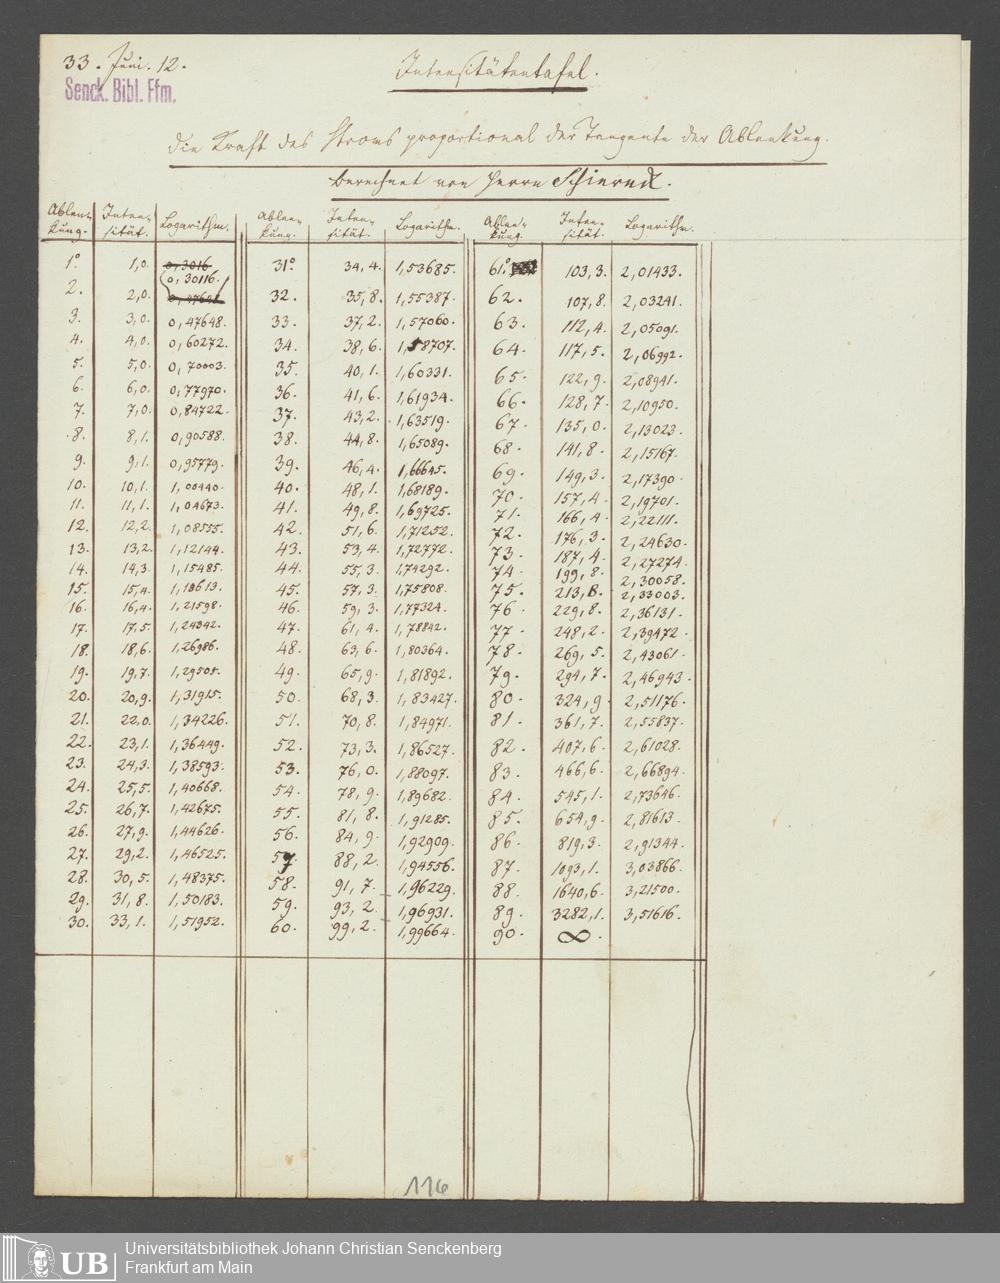 33. Juni. 12.
Senck. Bibl. Ffm.
Intensitätentafel.
die Kraft des Stroms proportional der Tangente der Ablenkung.
berechnet von Herrn
Ablen- Inten- Logarithm. Ablen- Inten- Logarithm. Ablen- Inten- Logarithm.
kung. sität. kung. sität. kung. sität.
1° 1,0. 0,3016 31° 34,4. 1,53685. 61° 103,3. 2,01433.
2. 2,0. 0,30116. 32. 35,8. 1,55387. 62. 107,8. 2,03241.
3. 3,0. 0,47648. 33. 37,2. 1,57060. 63. 112,4. 2,05091.
4. 4,0. 0,60272. 34. 38,6. 1,58707. 64. 117,5. 2,06992.
5. 5,0. 0,70003. 35. 40,1. 1,60331. 65. 122,9. 2,08941.
6. 6,0. 0,77970. 36. 41,6. 1,61934. 66. 128,7. 2,10950.
7. 7,0. 0,84722. 37. 43,2. 1,63519. 67. 135,0. 2,13023.
8. 8,1. 0,90588. 38. 44,8. 1,65089. 68. 141,8. 2,15167.
9. 9,1. 0,95779. 39. 46,4. 1,66645. 69. 149,3. 2,17390.
10. 10,1. 1,00440. 40. 48,1. 1,68189. 70. 157,4. 2,19701.
11. 11,1. 1,04673. 41. 49,8. 1,69725. 71. 166,4. 2,22111.
12. 12,2. 1,08555. 42. 51,6. 1,71252. 72. 176,3. 2,24630.
13. 13,2. 1,12144. 43. 53,4. 1,72772. 73. 187,4. 2,27274.
14. 14,3. 1,15485. 44. 55,3. 1,74292. 74. 199,8. 2,30058.
15. 15,4. 1,18613. 45. 57,3. 1,75808. 75. 213,8. 2,33003.
16. 16,4. 1,21598. 46. 59,3. 1,77324. 76. 229,8. 2,36131.
17. 17,5. 1,24342. 47. 61,4. 1,78842. 77. 248,2. 2,39472.
18. 18,6. 1,26986. 48. 63,6. 1,80364. 78. 269,5. 2,43061.
19. 19,7. 1,29505. 49. 65,9. 1,81892. 79. 294,7. 2,46943.
20. 20,9. 1,31915. 50. 68,3. 1,83427. 80. 324,9. 2,51176.
21. 22,0. 1,34226. 51. 70,8. 1,84971. 81. 361,7. 2,55837.
22. 23,1. 1,36449. 52. 73,3. 1,86527. 82. 407,6. 2,61028.
23. 24,3. 1,38593. 53. 76,0. 1,88097. 83. 466,6. 2,66894.
24. 25,5. 1,40668. 54. 78,9. 1,89682. 84. 545,1. 2,73646.
25. 26,7. 1,42675. 55. 81,8. 1,91285. 85. 654,9. 2,81613.
26. 27,9. 1,44626. 56. 84,9. 1,92909. 86. 819,3. 2,91344.
27. 29,2. 1,46525. 57. 88,2. 1,94556. 87. 1093,1. 3,03866.
28. 30,5. 1,48375. 58. 91,7. 1,96229. 88. 1640,6. 3,21500.
29. 31,8. 1,50183. 59. 93,2. 1,96931. 89. 3282,1. 3,51616.
30. 33,1. 1,51952. 60. 99,2. 1,99664. 90. ∞.
116
UB
Universitätsbibliothek Johann Christian Senckenberg
Frankfurt am Main